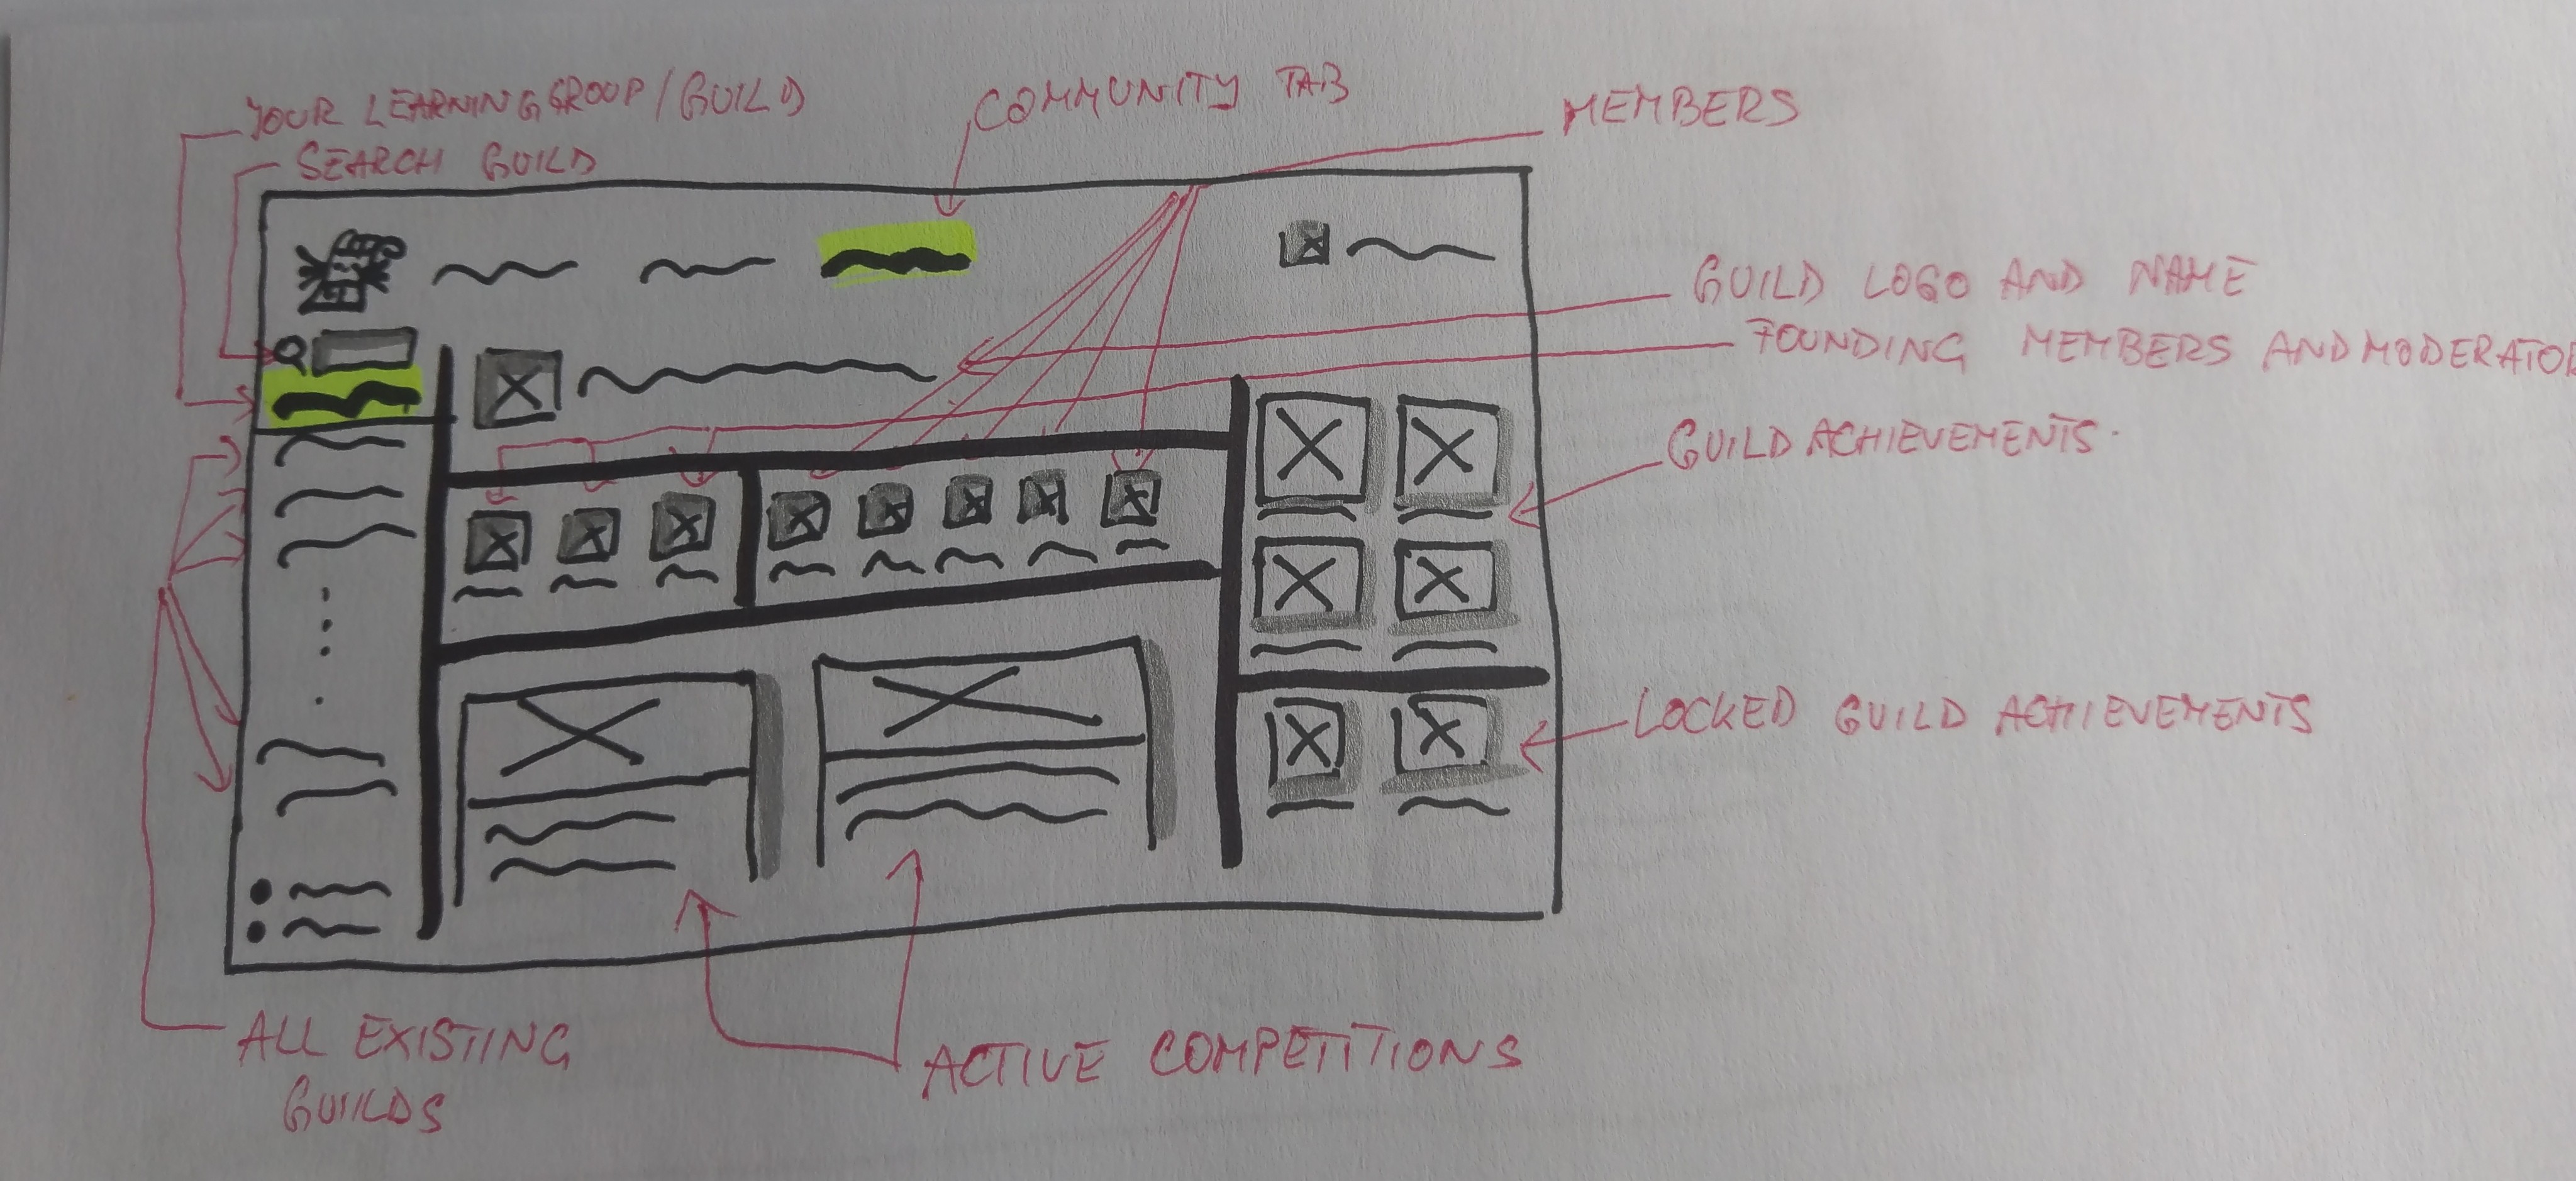 YOUR LEARNING GROUP/GUILD
SEARCH GUILD
COMMUNITY TAB
MEMBERS
GUILD LOGO AND NAME
FOUNDING MEMBERS AND MODERATOR
GUILD ACHIEVEMENTS.
LOCKED GUILD ACHIEVEMENTS
ACTIVE COMPETITIONS
ALL EXISTING
GUILDS